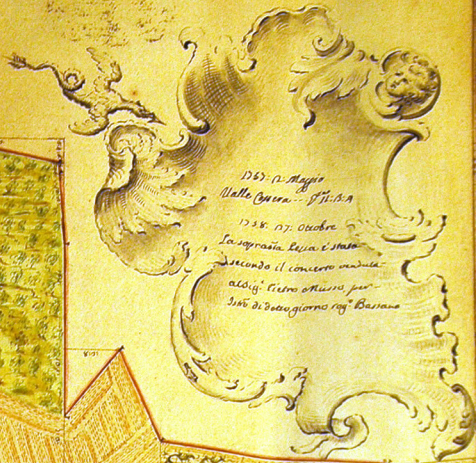 1767. 12. Maggio
Valle Cossera
1758. 17. Ottobre
La sopradta Pezza è stata
secondo il concerto venduta
al Sigr. Pietro Musso per
di detto giorno rogo. Bassano